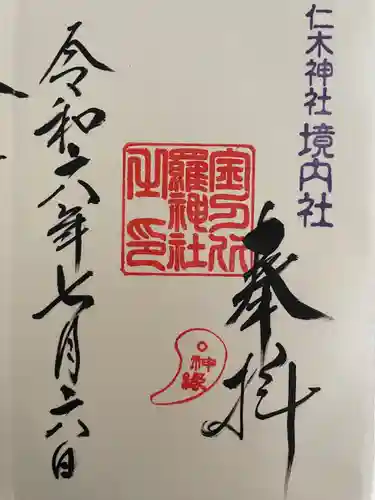 仁木神社境内社
奉拝
金刀比
羅神社
之印
神縁
令和六年七月六日